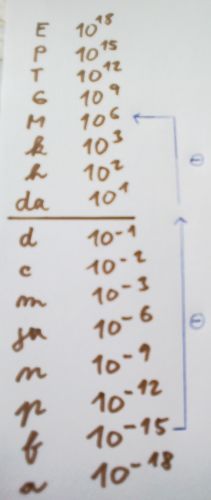 E 10¹⁸
P 10¹⁵
T 10¹²
G 10⁹
M 10⁶
k 10³
h 10²
da 10¹
d 10⁻¹
c 10⁻²
m 10⁻³
μ 10⁻⁶
n 10⁻⁹
p 10⁻¹²
f 10⁻¹⁵
a 10⁻¹⁸
⊖
⊖